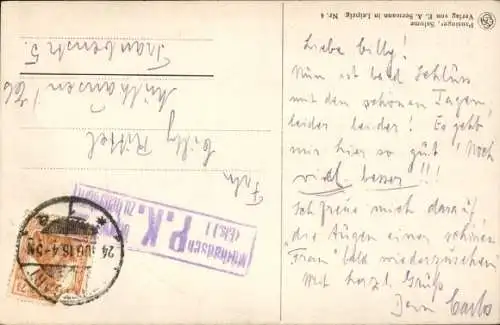 Panzinger, Salome
Verlag von E. A. Seemann in Leipzig. Nr. 4
Liebe Cilly!
Nun ist bald Schluss
mit den schönen Tagen
leider leider! Es geht
mir hier so gut! Noch
viel besser!!!
Ich freue mich darauf
die Augen einer schönen
"Frau" bald wiederzusehen
Mit herzl. Gruß
Dein Carlo
Frln
Cilly Rittel
Mülhausen i/Els
Traubenstr. 5.
Mülhausen
(Els.)
P.K.
24
16 4-5N